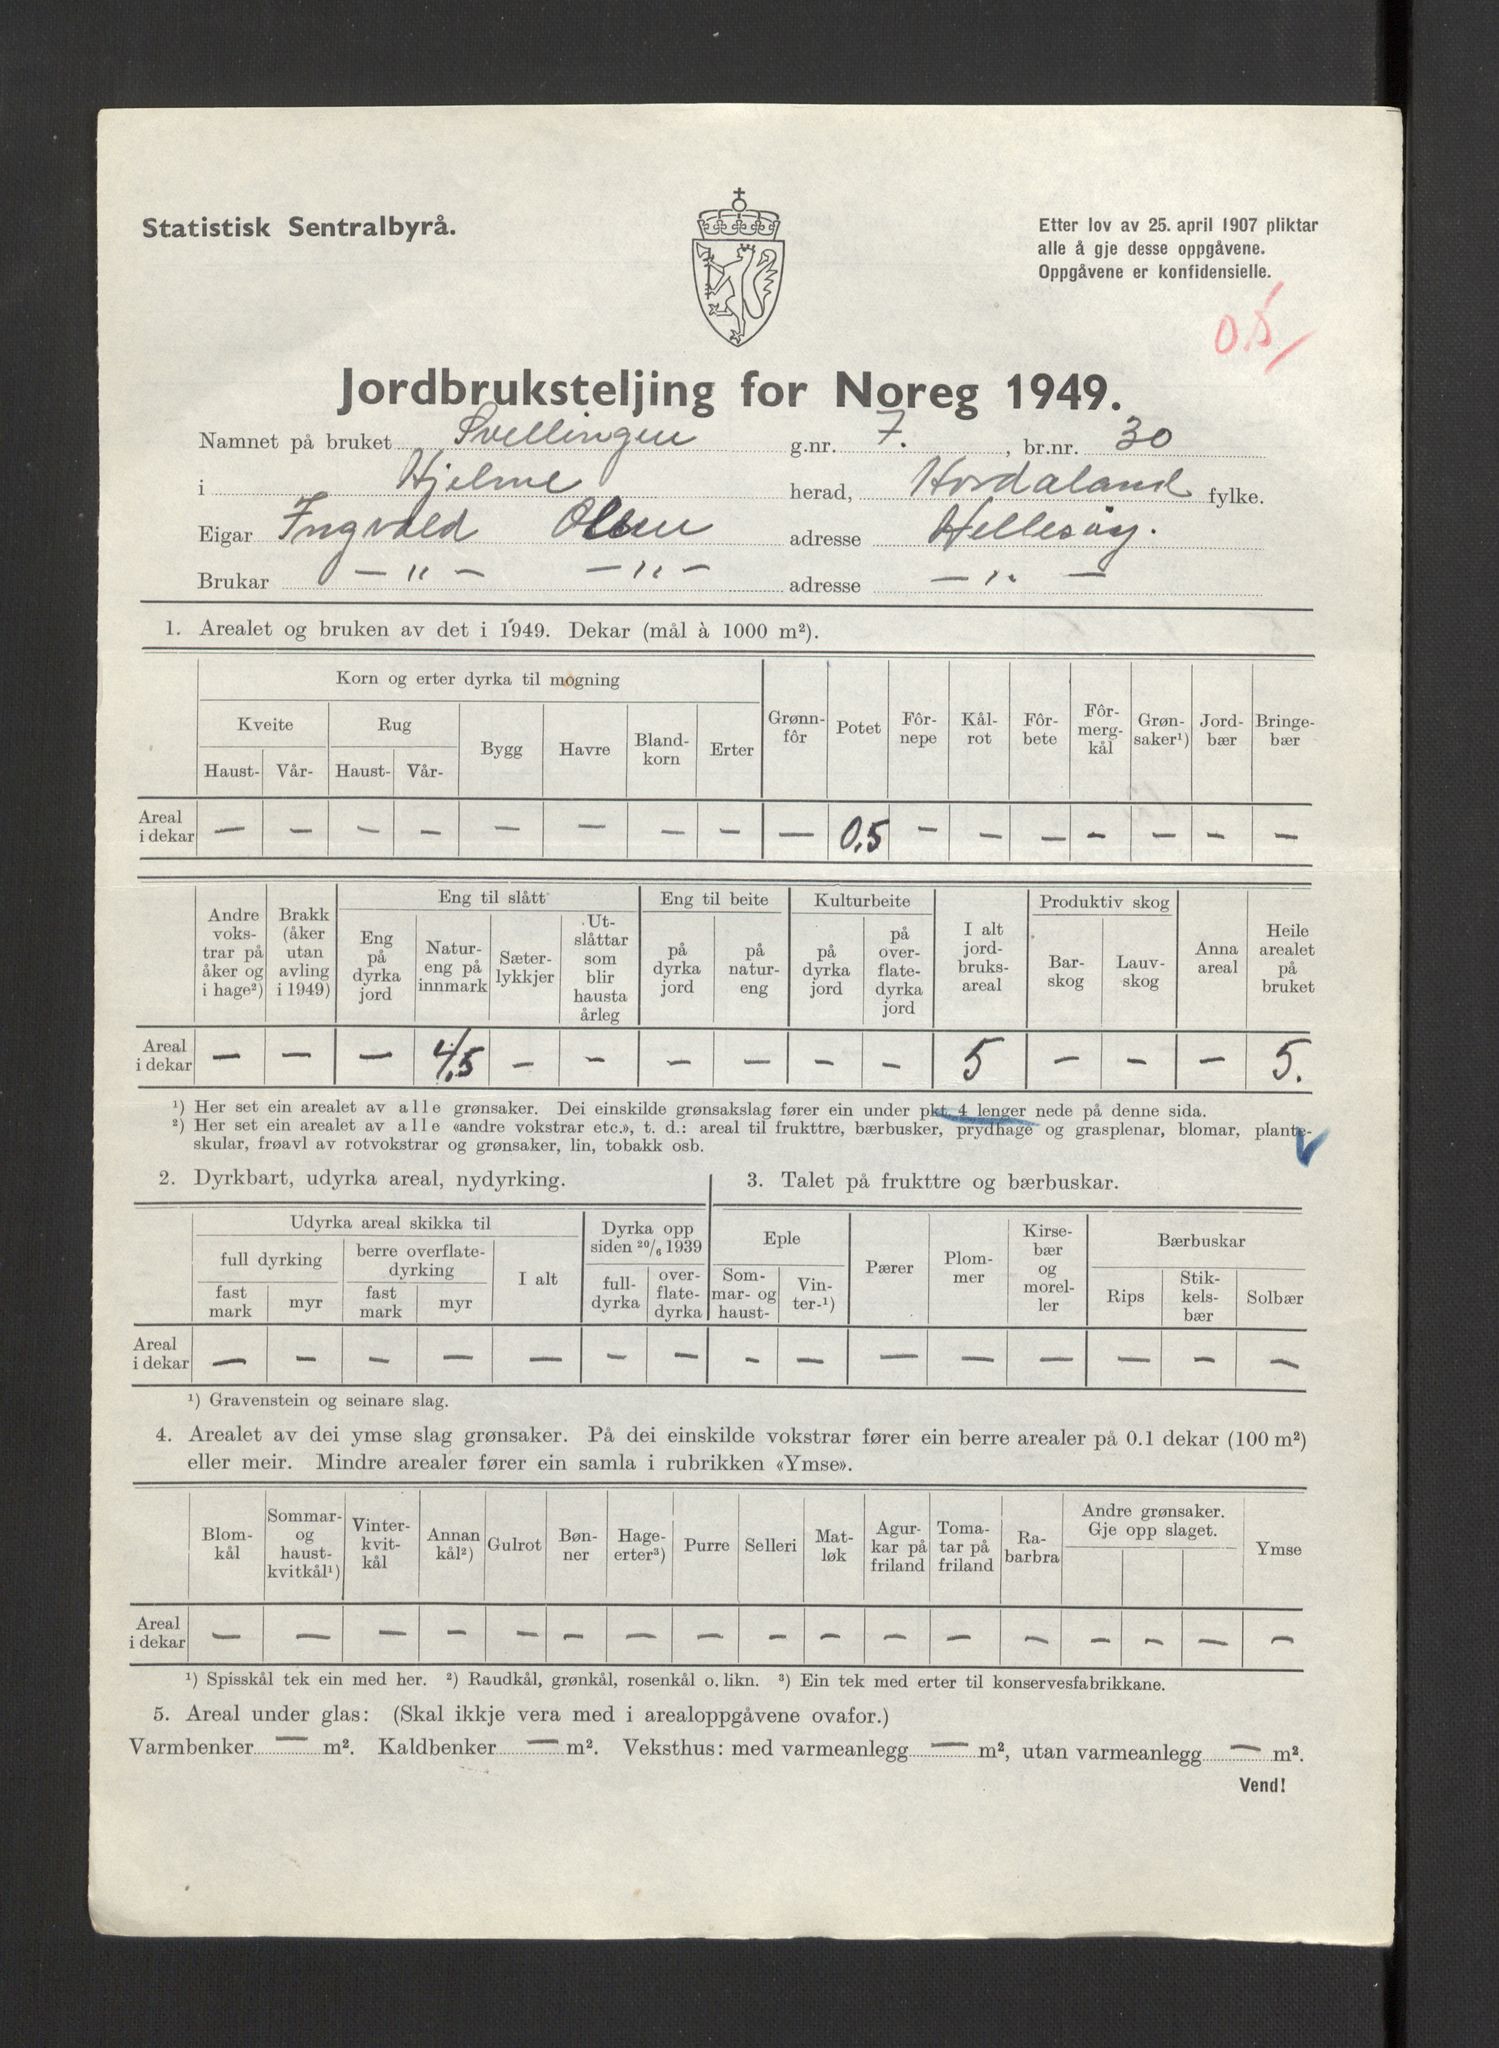 Statistisk Sentralbyrå.
Etter lov av 25. april 1907 pliktar
alle å gje desse oppgåvene.
Oppgåvene er konfidensielle.
0.5
Jordbruksteljing for Noreg 1949.
Namnet på bruket Svellingen g.nr. 7. , br.nr. 30
i Hjelme herad, Hordaland fylke.
Eigar Ingvald Olsen adresse Hellesøy.
Brukar — " — — " — adresse — " —
1. Arealet og bruken av det i 1949. Dekar (mål à 1000 m²).
Korn og erter dyrka til mogning
Kveite Rug
Haust- Vår- Haust- Vår- Bygg Havre Bland-korn Erter Grønn-fôr Potet Fôr-nepe Kål-rot Fôr-bete Fôr-merg-kål Grøn-saker¹) Jord-bær Bringe-bær
Areal i dekar — — — — — — — — — 0,5 — — — — — — —
Eng til slått Eng til beite Kulturbeite Produktiv skog
Andre voks-trar på åker og i hage²) Brakk (åker utan avling i 1949) Eng på dyrka jord Natur-eng på innmark Sæter-lykkjer Ut-slåttar som blir hausta årleg på dyrka jord på natur-eng på dyrka jord på over-flate-dyrka jord I alt jord-bruks-areal Bar-skog Lauv-skog Anna areal Heile arealet på bruket
Areal i dekar — — — 4,5 — — — — — — 5 — — — 5.
¹) Her set ein arealet av alle grønsaker. Dei einskilde grønsakslag fører ein under pkt. 4 lenger nede på denne sida.
²) Her set ein arealet av alle «andre vokstrar etc.», t. d.: areal til frukttre, bærbusker, prydhage og grasplenar, blomar, plante-
skular, frøavl av rotvokstrar og grønsaker, lin, tobakk osb.
2. Dyrkbart, udyrka areal, nydyrking.
Udyrka areal skikka til Dyrka opp siden 20/6 1939
full dyrking berre overflate-dyrking I alt
fast mark myr fast mark myr full-dyrka over-flate-dyrka
3. Talet på frukttre og bærbuskar.
Eple Pærer Plom-mer Kirse-bær og morel-ler Bærbuskar
Som-mar- og haust- Vin-ter-¹) Rips Stik-kels-bær Solbær
Areal i dekar — — — — — — — — — — — — — — —
¹) Gravenstein og seinare slag.
4. Arealet av dei ymse slag grønsaker. På dei einskilde vokstrar fører ein berre arealer på 0.1 dekar (100 m²)
eller meir. Mindre arealer fører ein samla i rubrikken «Ymse».
Blom-kål Sommar- og haust-kvitkål¹) Vinter-kvit-kål Annan kål²) Gulrot Bøn-ner Hage-erter³) Purre Selleri Mat-løk Agur-kar på friland Toma-tar på friland Ra-barbra Andre grønsaker. Gje opp slaget. Ymse
Areal i dekar — — — — — — — — — — — — — — — — —
¹) Spisskål tek ein med her. ²) Raudkål, grønkål, rosenkål o. likn. ³) Ein tek med erter til konservesfabrikkane.
5. Areal under glas: (Skal ikkje vera med i arealoppgåvene ovafor.)
Varmbenker — m². Kaldbenker — m². Veksthus: med varmeanlegg — m², utan varmeanlegg — m².
Vend!